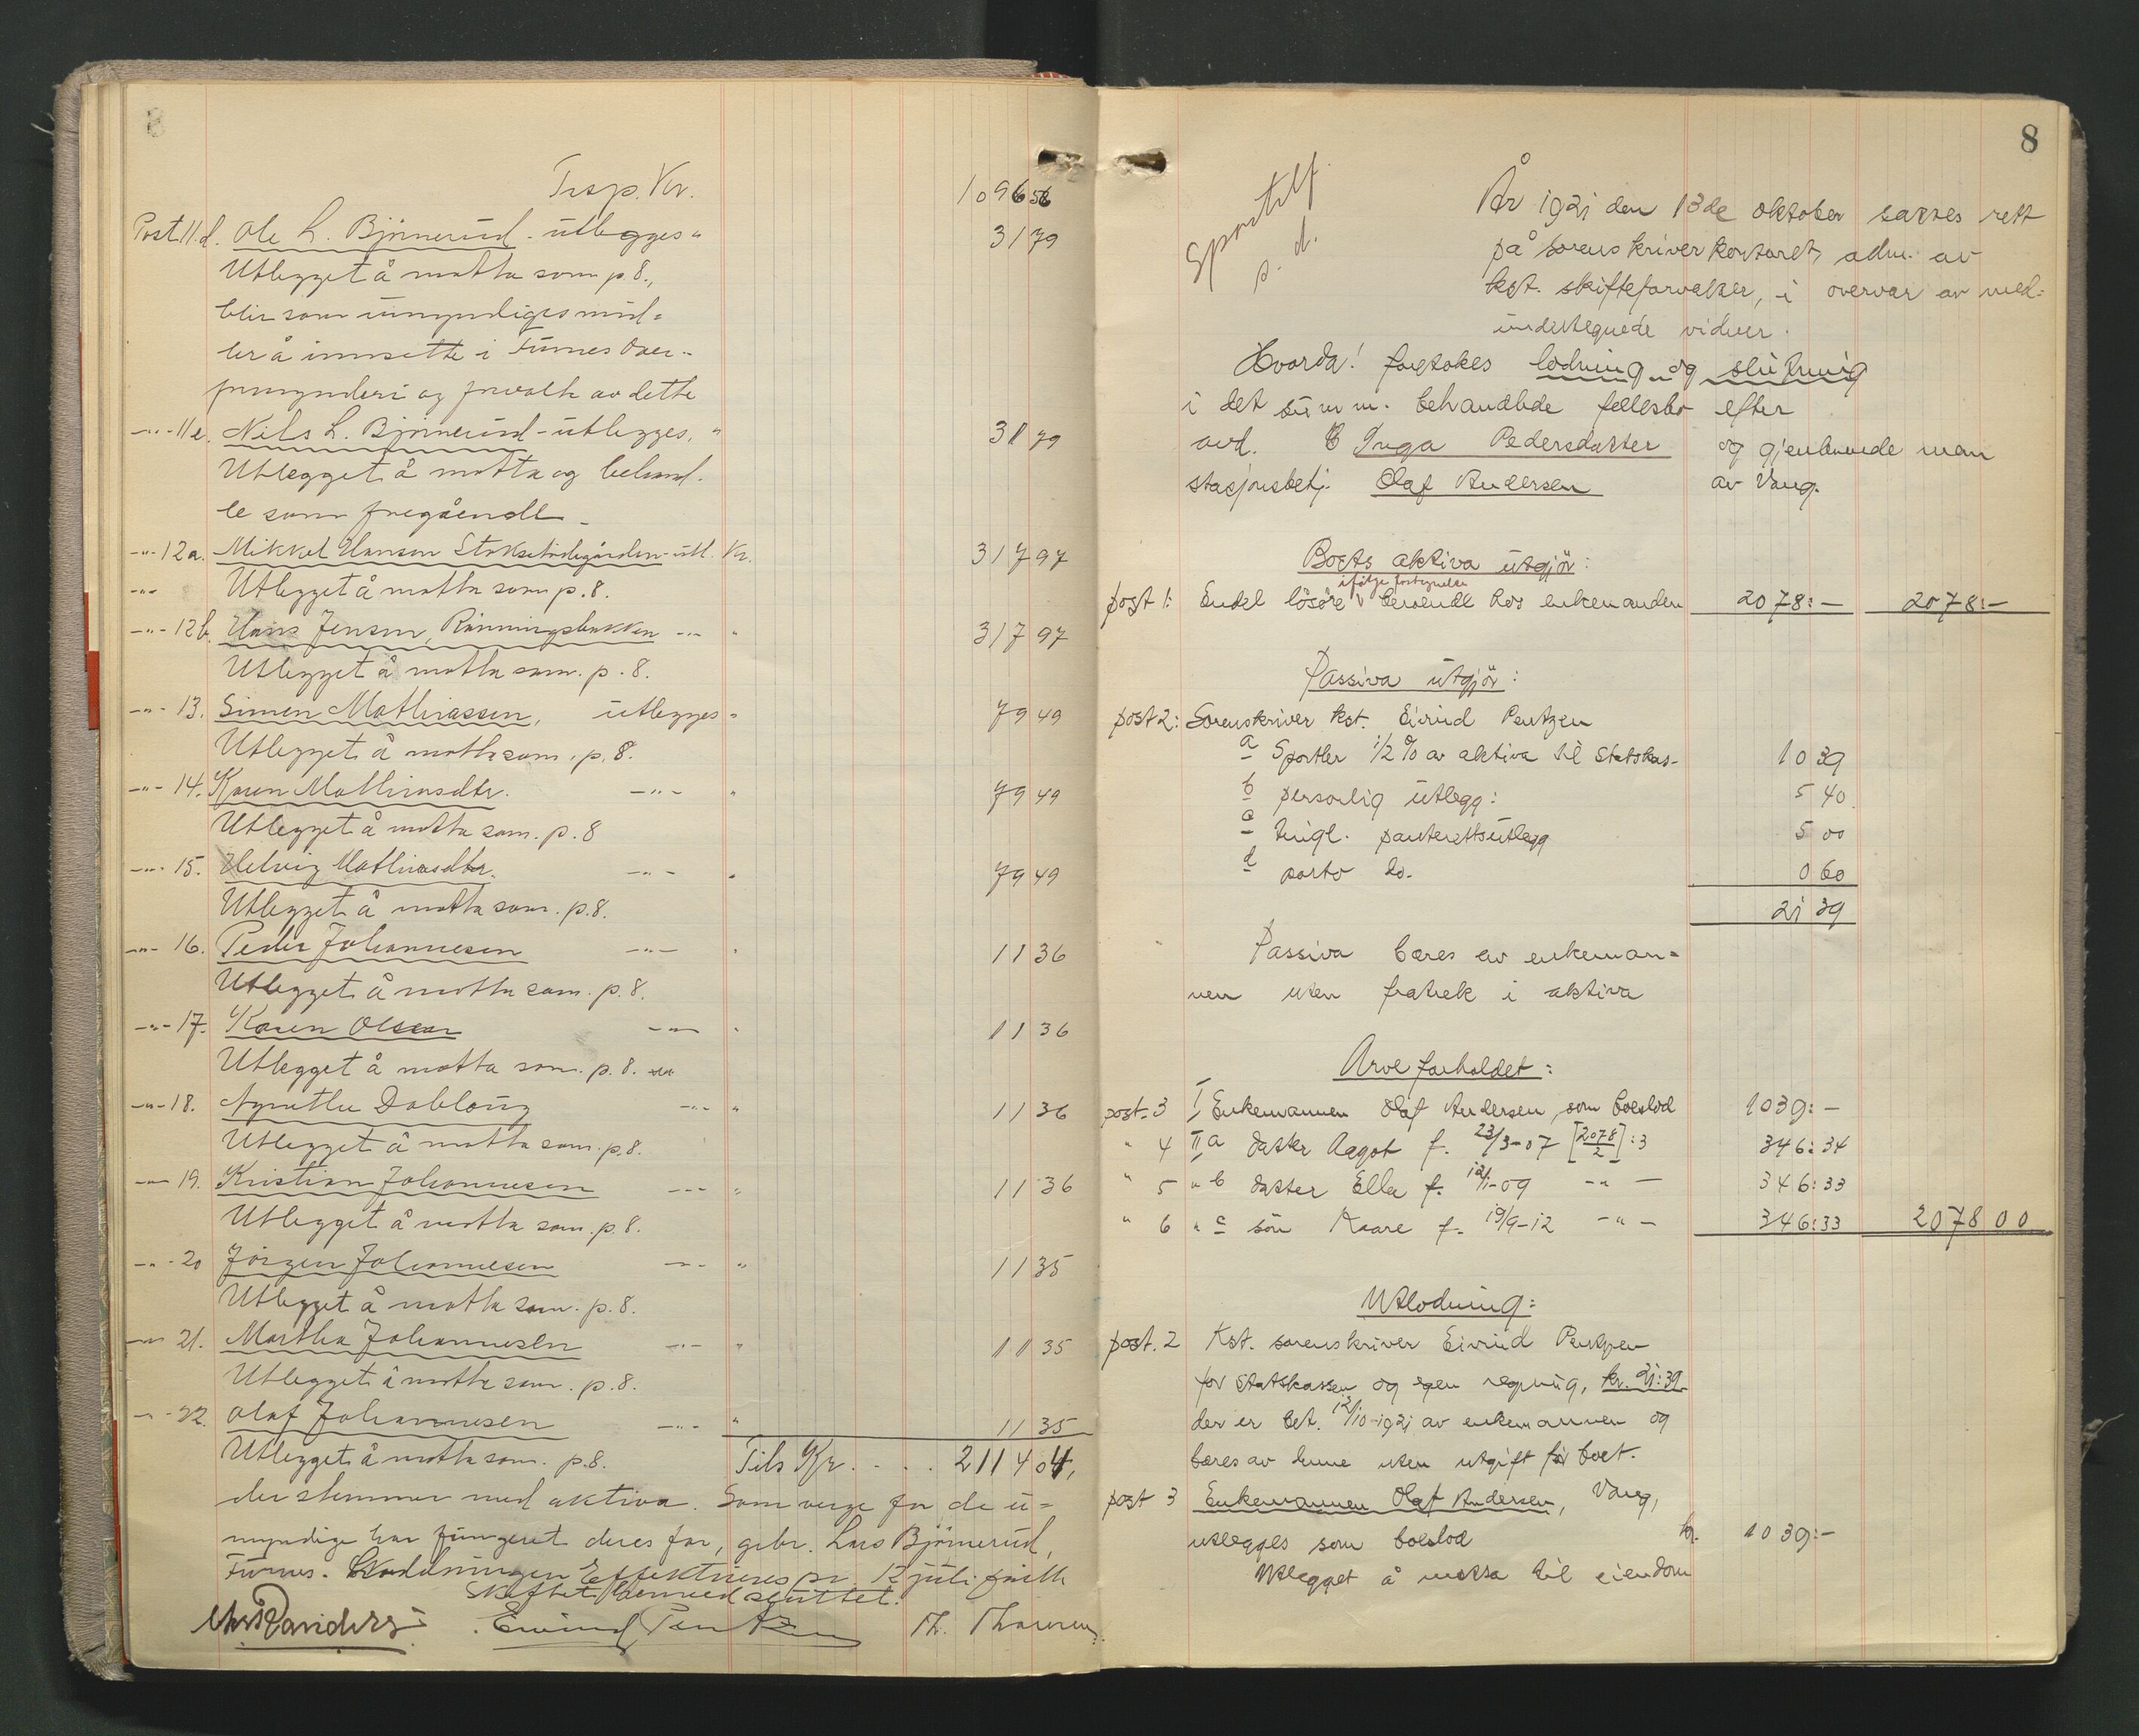 Trsp. Kr. 1096 56
Post 11.d. Ole L. Björnerud - utlegges " 31 79
Utlegget å motta som p. 8.,
blir som umyndiges mid=
ler å innsette i Furnes Over-
formynderi og forvalte av dette
-"- 11e. Nils L. Björnerud - utlegges, " 31 79
Utlegget å motta og behand-
le som foregående
-"- 12a. Mikkel Hansen - utl. Kr. 317 97
-"- Utlegget å motta som p. 8.
-"- 12b. Hans Jensen, Rönningsbakken -"- " 317 97
Utlegget å motta som. p. 8.
-"- 13. Simen Mathiassen, utlegges " 79 49
Utlegget å motta som. p. 8.
-"- 14. Karen Mathiasdtr. -"- " 79 49
Utlegget å motta som. p. 8
-"- 15. Helvig Mathiasdtr. -"- " 79 49
Utlegget å motta som. p. 8.
-"- 16. Peder Johannesen -"- " 11 36
Utlegget å motta som. p. 8.
-"- 17. Karen Olsen -"- " 11 36
Utlegget å motta som. p. 8.
-"- 18. Agnethe Dobloug -"- " 11 36
Utlegget å motta som. p. 8.
-"- 19. Kristian Johannesen -"- " 11 36
Utlegget å motta som. p. 8.
-"- 20 Jörgen Johannesen -"- " 11 35
Utlegget å motta som. p. 8.
-"- 21. Martha Johannesen -"- " 11 35
Utlegget å motta som. p. 8.
-"- 22. Olaf Johannesen -"- " 11 35
Utlegget å motta som. p. 8. Tils Kr. . . . 2114 04,
der stemmer med aktiva. Som verge for de u=
myndige har fungeret deres far, gbr. Lars Björnerud,
Furnes. Utloddningen effektueres pr. juli
Skiftet hermed sluttet.
Eivind Pentzen Th.
8
Sportelf.
s. d.
År 1921 den 13de oktober sattes rett
på sorenskriverkontoret, adm. av
kst. skifteforvalter, i overvær av med=
undertegnede vidner.
Hvorda! foretokes lodning og slutning
i det summ. behandlede fellesbo efter
avd. Inga Pedersdatter og gjenlevende man
stasjonsbetj. Olaf Andersen av Vang.
Boets aktiva utgjör:
ifölge fortegnelse
post 1: Endel lösöre beroende hos enkemanden 2078:- 2078:-
Passiva utgjör:
post 2: Sorenskriver kst. Eivind Pentzen
a Sportler 1/2 % av aktiva til Statskas- 10 39
b personlig utlegg: 5 40
c tingl. panterettsutlegg 5 00
d porto do. 0 60
21 39
Passiva bæres av enkeman=
nen uten fratrek i aktiva
Arveforholdet:
post. 3 I Enkemannen Olaf Andersen som boeslod 1039:-
" 4 II a datter Aagot f. 23/3-07 [2078/2]:3 346:34
" 5 " b datter Ella f. 12/1-09 -"- 346:33
" 6 " c sön Kaare f. 19/9-12 -"- 346:33 2078 00
Utlodning:
post. 2 Kst. sorenskriver Eivind Pentzen
for Statskassen og egen regning, kr. 21:39
der er bet. 12/10-1921 av enkemannen og
bæres av denne uten utgift for boet.
post 3 Enkemannen Olaf Andersen, Vang,
utlegges som boeslod kr. 1039:-
Utlegget å motta til eiendom